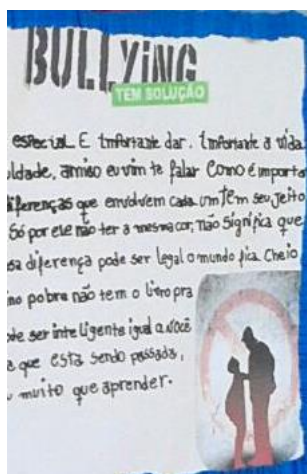 BULLYiNG
TEM SOLUÇÃO
especial E Importante dar. Importante a vida
uldade, amigo eu vim te falar Como é importa
diferenças que envolvem cada um Tem seu jeito
Só por ele não ter a mesma cor, não significa que
sa diferença pode ser legal o mundo fica Cheio
no pobre não tem o livro pra
de ser inteligente igual a você
que esta sendo passada,
muito que aprender.